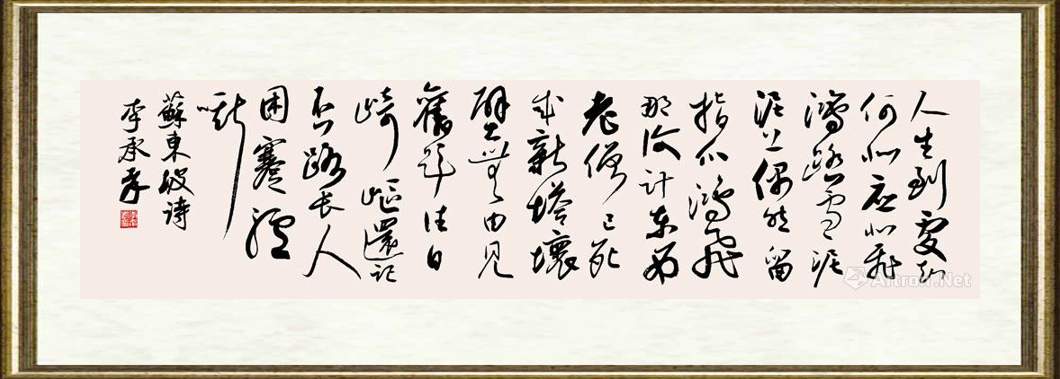 人生到處知
何似應似飛
鴻踏雪泥
泥上偶然留
指爪鴻飛
那復計東西
老僧已死
成新塔壞
壁無由見
舊題往日
崎嶇還記
否路長人
困蹇驢
嘶
蘇東坡詩
李承
Artron.Net